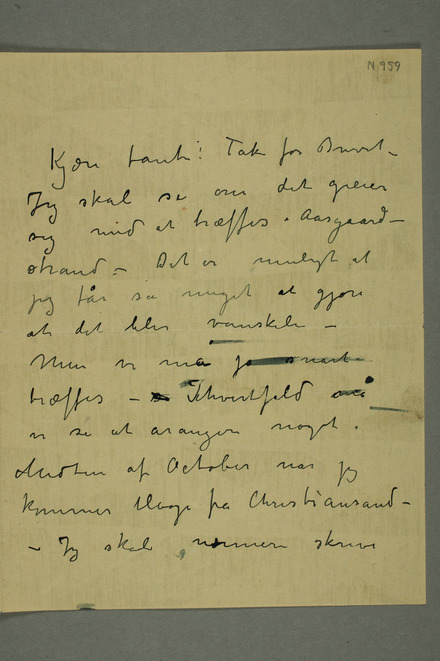 N 959
Kjære tante! Tak for Brevet –
Jeg skal se om det greier
sig med at træffes i Aasgaard–
strand – Det er muligt at
jeg får så meget at gjøre
at det blir vanskeli –
Men vi må jo snart
træffes – I hvertfald må
vi se at arangere noget.
Midten af October når jeg
kommer tilbage fra Christiansand –
– Jeg skal nærmere skrive